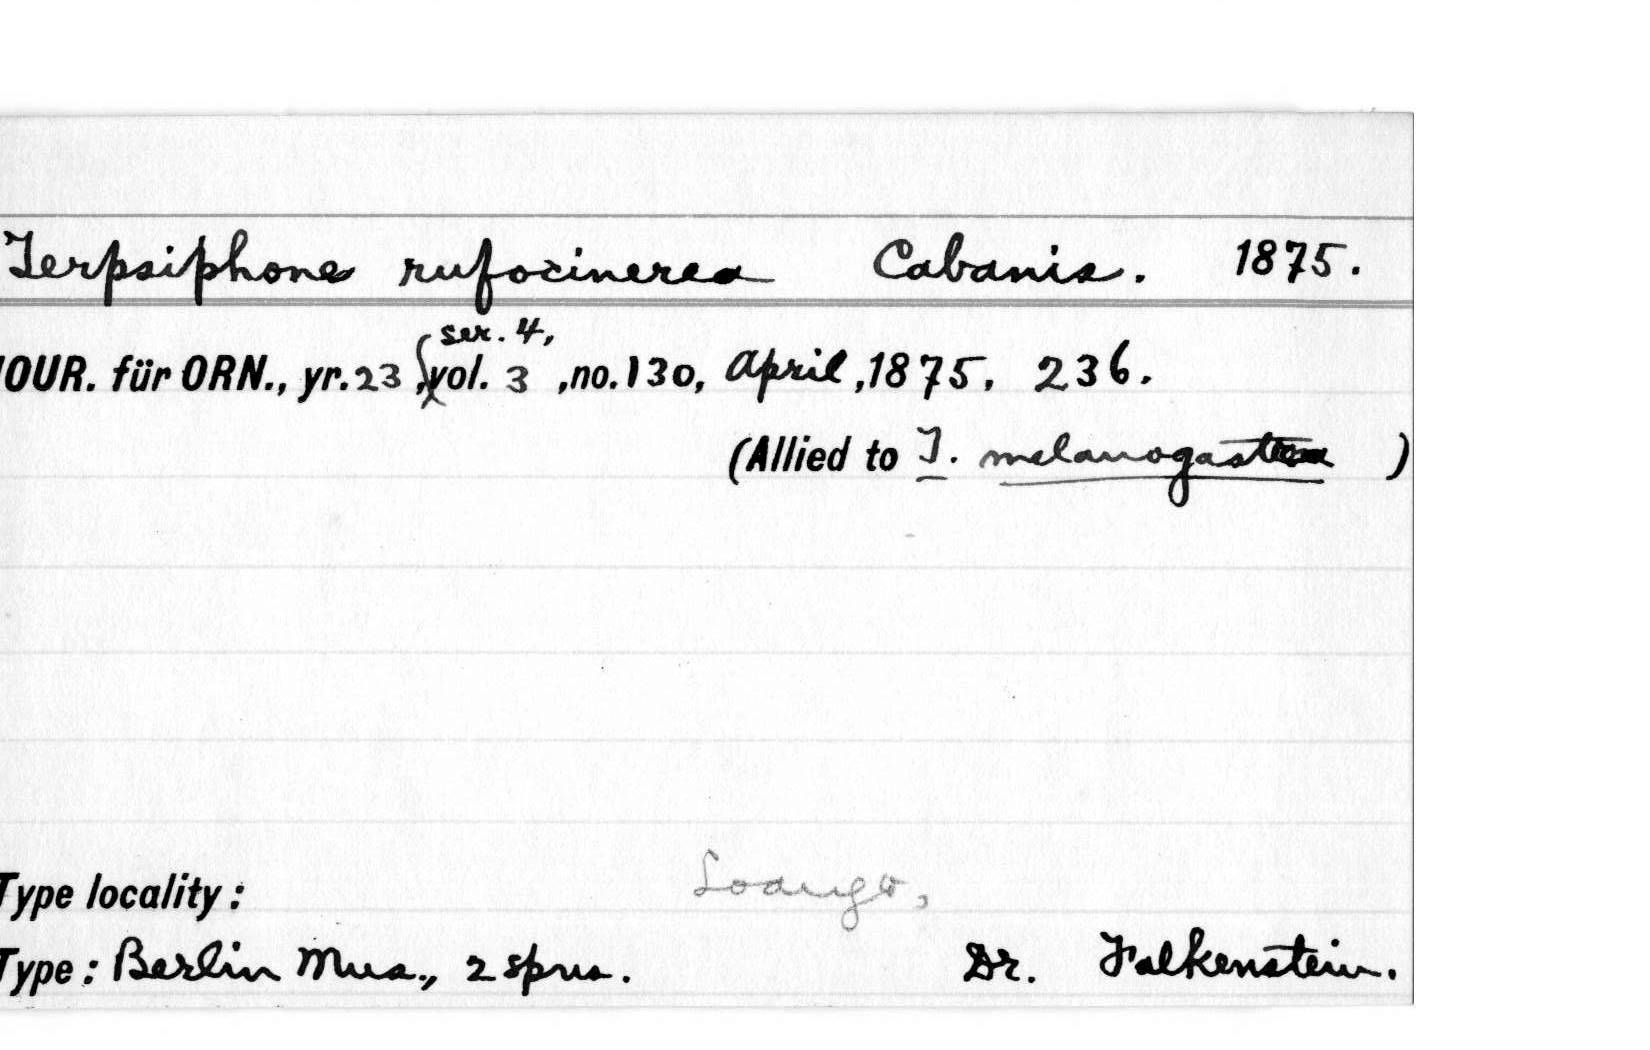 Terpsiphone rufocinerea Cabanis. 1875.
ser. 4,
JOUR. für ORN., yr. 23, vol. 3, no. 130, April, 1875, 236.
(Allied to T. melanogastra )
Type locality: Loango,
Type: Berlin Mus., 2 spms. Dr. Falkenstein.